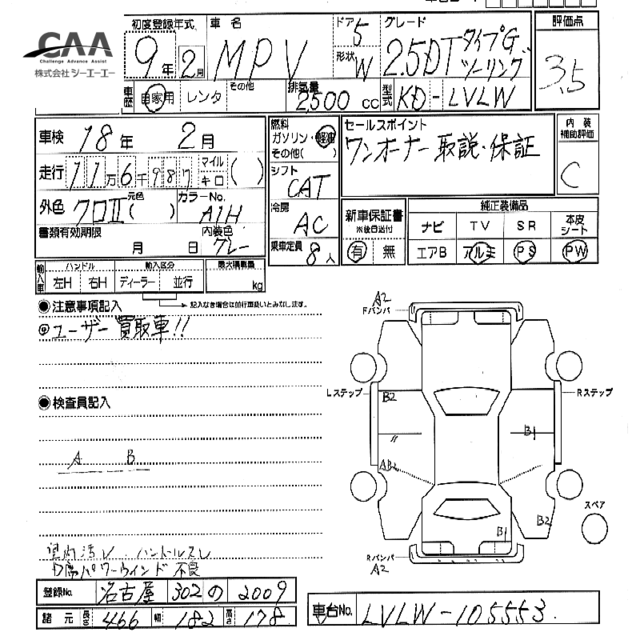 CAA
Challenge Advance Assist
株式会社 シーエーエー
初度登録年式 車名 ドア グレード 評価点
9年 2月 MPV 5 形状 W 2.5DT タイプG ツーリング 3.5
車歴 自家用 レンタ その他 排気量 2500 cc 型式 KD-LVLW
車検 18年 2月 燃料 ガソリン・軽油 その他( ) セールスポイント 内装補助評価
走行 11万6千987 マイル キロ ( ) シフト CAT ワンオーナー 取説・保証 C
外色 クロⅡ 元色 ( ) カラーNo. A1H 冷房 AC 新車保証書 ※後日送付 純正装備品
ナビ TV SR 本皮シート
書類有効期限 月 日 内装色 グレー 乗車定員 8人 有 無 エアB アルミ PS PW
輸入車 ハンドル 左H 右H 輸入区分 ディーラー 並行 最大積載量 kg
記入なき場合は並行扱いとみなします。
注意事項記入
ユーザー買取車!!
A2
Fバンパ
Lステップ Rステップ
検査員記入
B2
B1
A B
AB2
スペア
B1 B2
Rバンパ
A2
室内汚レ ハンドルスレ
D席パワーウインド不良
登録No. 名古屋 302 の 2009
諸元 長さ 466 幅 182 高さ 178
車台No. LVLW-105553